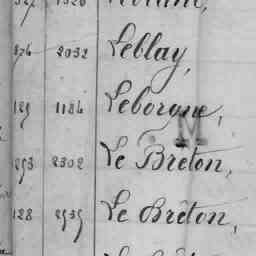 876 2032 Leblay,
129 1184 Leborgne,
293 2302 Le Breton,
128 2939 Le Breton,